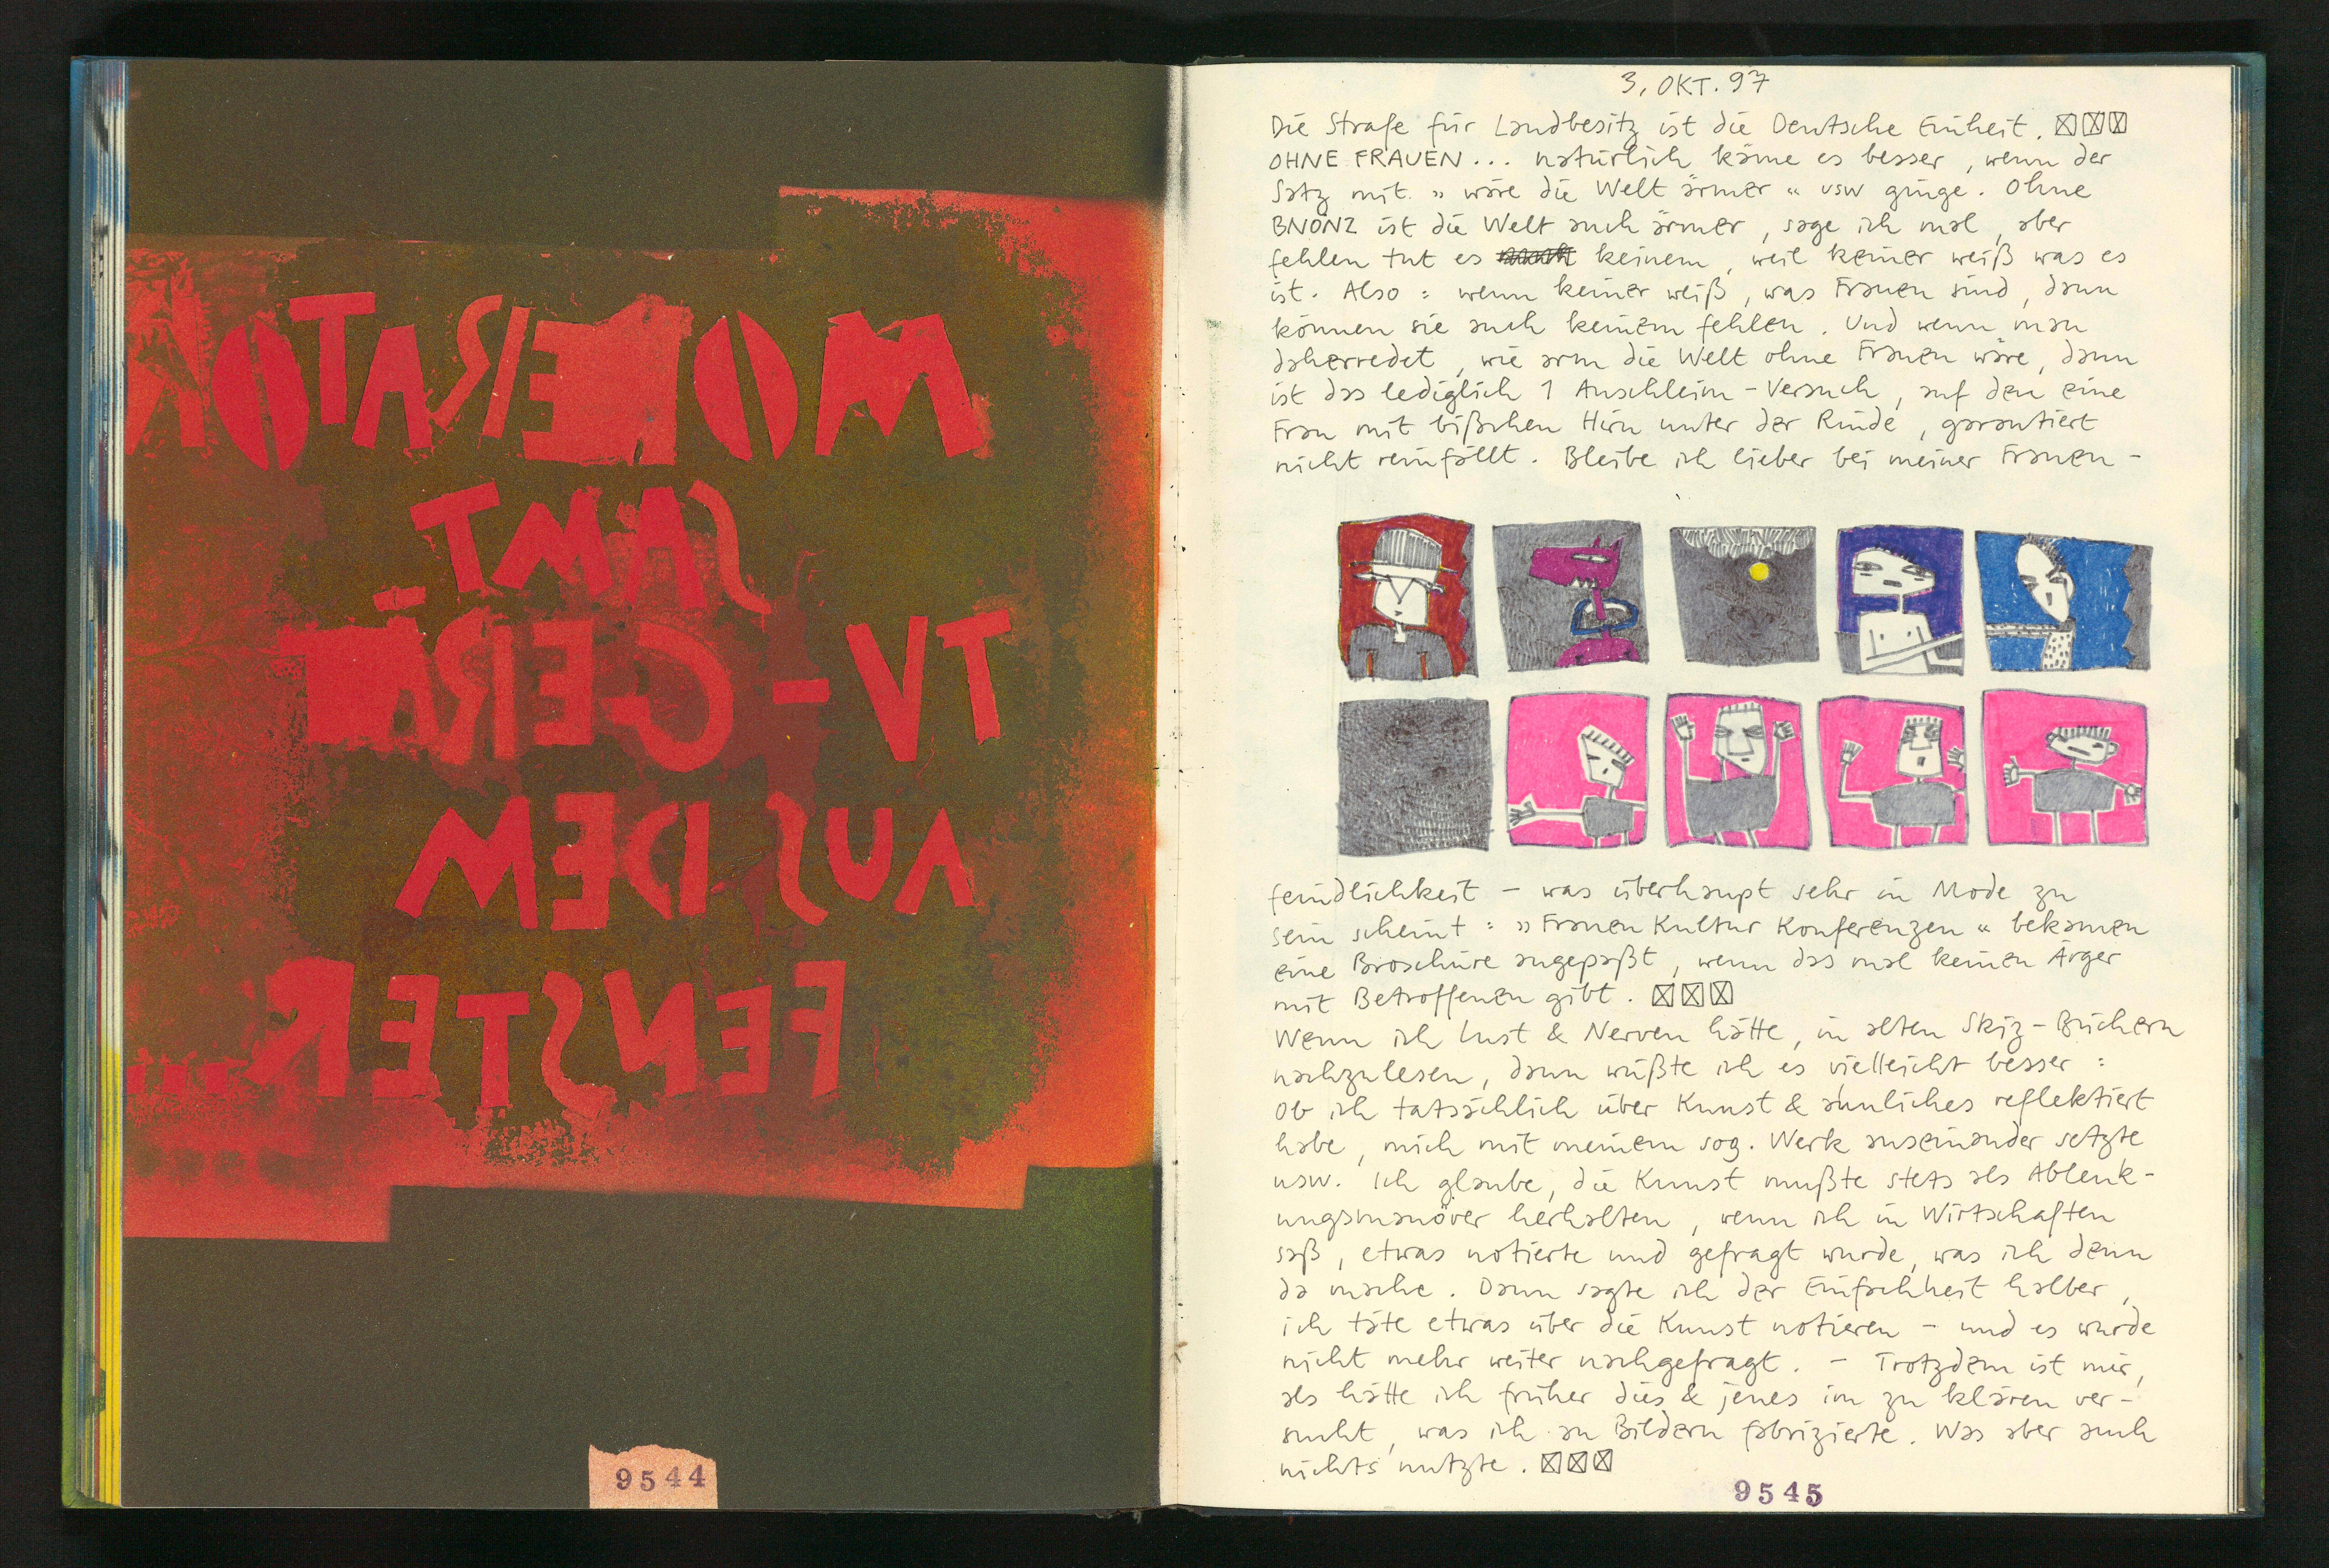 MODERATOR
SAMT
TV-GERÄT
AUS DEM
FENSTER
9544
3. OKT. 97
Die Strafe für Landbesitz ist die Deutsche Einheit. ☒☒☒
OHNE FRAUEN... natürlich käme es besser, wenn der
Satz mit „wäre die Welt ärmer“ usw ginge. Ohne
BNÖNZ ist die Welt auch ärmer, sage ich mal, aber
fehlen tut es keinem, weil keiner weiß was es
ist. Also: wenn keiner weiß, was Frauen sind, dann
können sie auch keinem fehlen. Und wenn man
daherredet, wie arm die Welt ohne Frauen wäre, dann
ist das lediglich 1 Anschleim-Versuch, auf den eine
Frau mit bißchen Hirn unter der Rinde, garantiert
nicht reinfällt. Bleibe ich lieber bei meiner Frauen-
feindlichkeit - was überhaupt sehr in Mode zu
sein scheint: „Frauen Kultur Konferenzen“ bekamen
eine Broschüre angepaßt, wenn das mal keinen Ärger
mit Betroffenen gibt. ☒☒☒
Wenn ich Lust & Nerven hätte, in alten Skiz-Büchern
nachzulesen, dann wüßte ich es vielleicht besser:
Ob ich tatsächlich über Kunst & ähnliches reflektiert
habe, mich mit meinem sog. Werk auseinander setzte
usw. Ich glaube, die Kunst mußte stets als Ablenk-
ungsmanöver herhalten, wenn ich in Wirtschaften
saß, etwas notierte und gefragt wurde, was ich denn
da mache. Dann sagte ich der Einfachheit halber,
ich täte etwas über die Kunst notieren - und es wurde
nicht mehr weiter nachgefragt. - Trotzdem ist mir,
als hätte ich früher dies & jenes im zu klären ver-
sucht, was ich an Bildern fabrizierte. Was aber auch
nichts nutzte. ☒☒☒
9545